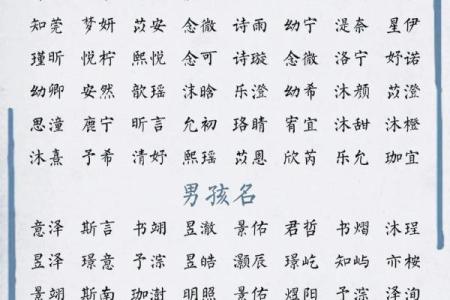 知莞 梦妍 苡安 念微 诗雨 幼宁 湜奈 星伊
瑾昕 悦柠 熙悦 念可 诗璇 念微 洛宁 妤诺
幼卿 安然 歆瑶 沐晗 乐澄 幼希 沐颜 苡澄
思潼 鹿宁 昕言 允初 珞晴 宥宜 沐甜 沐橙
沐熹 予希 清妤 熙瑶 苡恩 欣芮 乐允 珈宜
男孩名
意泽 斯言 书翊 昱澈 景佑 君哲 书熠 沐珵
昱泽 璟意 予淙 昱皓 灏辰 璟屹 知屿 亦桉
景翊 斯南 珈澍 明照 景佑 煜阳 予淙 泽洵